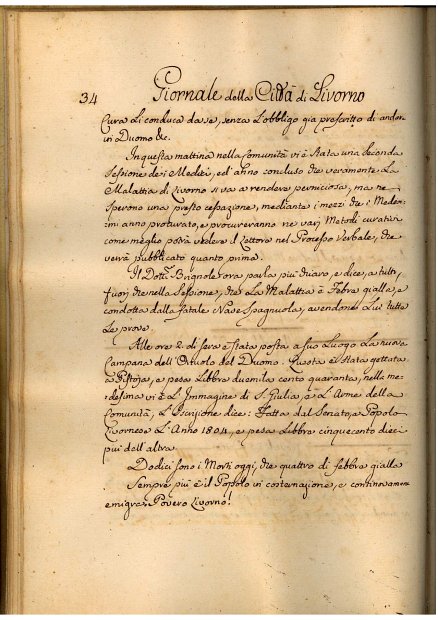 34 Giornale della Città di Livorno
Cura li conduca da se, senza l'obbligo gia prescritto di andar
in Duomo &c.
In questa mattina nella Comunità vi è stata una seconda
sessione de i Medici, ed anno concluso che veramente la
Malattia di Livorno si va a rendere perniciosa, ma ne
sperono una presto cessazione, mediante i mezzi che i Mede-
simi anno procurato, e procureranno ne vari Metodi curativi
come meglio potrà vedere il Lettore nel Processo Verbale, che
verrà pubblicato quanto prima.
Il Dott. Brignole ora parla piu chiaro, e dice, a tutti,
fuori che nella Sessione, che La Malattia è Febre gialla, e
condotta dalla fatale Nave Spagnuola, avendone Lui tutte
le prove.
Alle ore 2. di sera è stata posta a suo Luogo La nuova
Campana dell' Oriuolo del Duomo. Questa è stata gettata
a Pistoja, e pesa Libbre duemila cento quaranta, nella me-
desima vi è L'Immagine di S. Giulia, e L'Arme della
Comunità, L'Iscrizione dice: Fatta dal Senato, e Popolo
Livornese L'Anno 1804, e pesa Libbre cinquecento dieci
piu dell'altra.
Dodici sono i Morti oggi, che quattro di febbre gialla
Sempre più è il Popolo in costernazione, e continovamente
emigra: Povero Livorno!